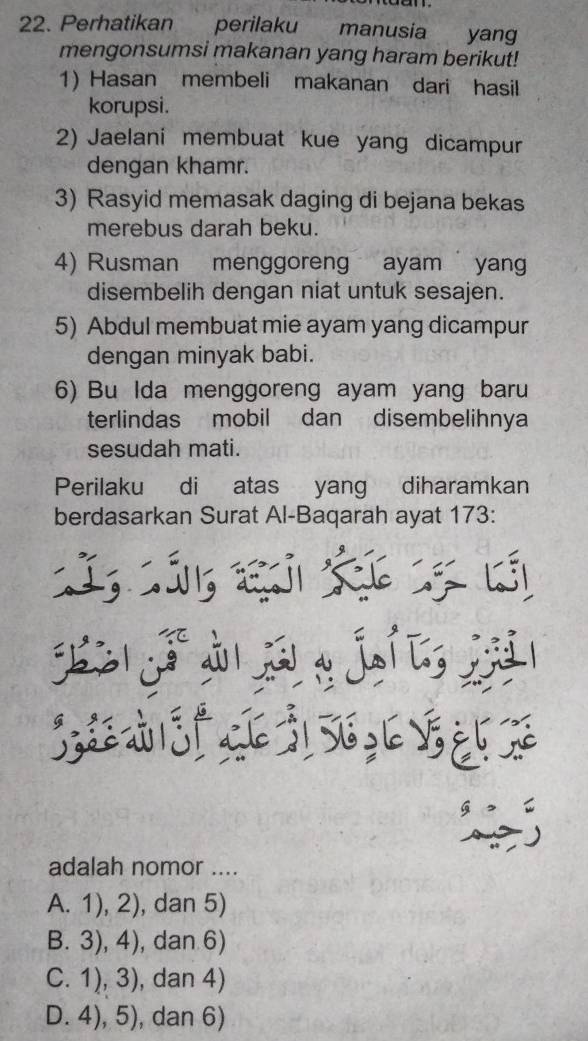 22. Perhatikan perilaku manusia yang
mengonsumsi makanan yang haram berikut!
1) Hasan membeli makanan dari hasil
korupsi.
2) Jaelani membuat kue yang dicampur
dengan khamr.
3) Rasyid memasak daging di bejana bekas
merebus darah beku.
4) Rusman menggoreng ayam yang
disembelih dengan niat untuk sesajen.
5) Abdul membuat mie ayam yang dicampur
dengan minyak babi.
6) Bu Ida menggoreng ayam yang baru
terlindas mobil dan disembelihnya
sesudah mati.
Perilaku di atas yang diharamkan
berdasarkan Surat Al-Baqarah ayat 173:
إِنَّمَا حَرَّمَ عَلَيْكُمُ الْمَيْتَةَ وَالدَّمَ وَلَحْمَ
الْخِنْزِيْرِ وَمَآ اُهِلَّ بِهٖ لِغَيْرِ اللّٰهِ ۚ فَمَنِ اضْطُرَّ
غَيْرَ بَاغٍ وَّلَا عَادٍ فَلَآ اِثْمَ عَلَيْهِ ۗ اِنَّ اللّٰهَ غَفُوْرٌ
رَّحِيْمٌ
adalah nomor ....
A. 1), 2), dan 5)
B. 3), 4), dan 6)
C. 1), 3), dan 4)
D. 4), 5), dan 6)